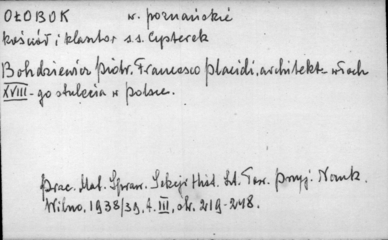 OŁOBOK w. poznańskie
kościół i klasztor s.s. Cysterek
Bohdziewicz Piotr. Francesco Placidi, architekt włoch
XVIII-go stulecia w Polsce.
Prac. Mat. Spraw. Sekcji Hist. Szt. Tow. Przyj. Nauk.
Wilno, 1938/39, t. III, str. 219-248.